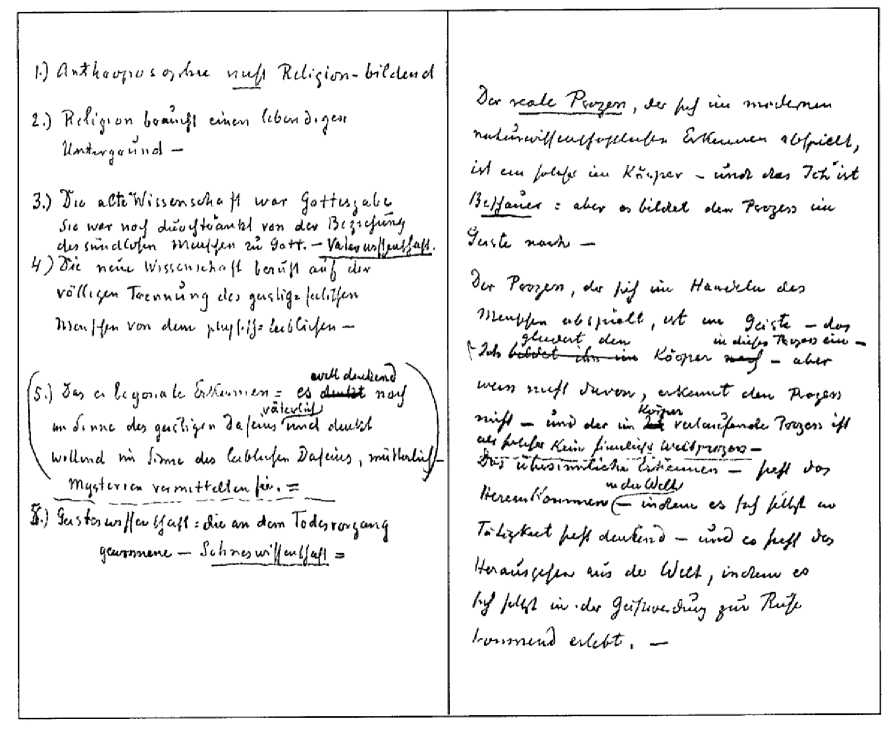 1.) Anthroposophie nicht Religion-bildend
2.) Religion braucht einen lebendigen
Untergrund –
3.) Die alte Wissenschaft war Gottesgabe
Sie war noch durchtränkt von der Beziehung
des sündlosen Menschen zu Gott. – Vaterwissenschaft.
4.) Die neue Wissenschaft beruht auf der
völligen Trennung des geistig-seelischen
Menschen von dem physisch-leiblichen –
5.) Das Erkennen = es denkt noch
will denkend
im Sinne des geistigen Daseins und denkt
väterlich
wollend im Sinne des leiblichen Daseins, mütterlich –
Mysterien vermittelten sie. =
Geisteswissenschaft = die an dem Todesvorgang
gewonnene – Sohneswissenschaft =
Der reale Prozess, der sich im modernen
naturwissenschaftlichen Erkennen abspielt,
ist ein solcher im Körper – und das Ich ist
Beschauer : aber es bildet den Prozess im
Geiste nach –
Der Prozess, der sich im Handeln des
Menschen abspielt, ist im Geiste – das
gliedert den in diesen Prozess ein –
Ich bildet ihn im Körper nach – aber
weiss nicht davon, erkennt den Prozess
nicht – und der im verlaufende Prozess ist
Körper
als solcher kein sinnlicher Weltprozess –
Das übersinnliche Erkennen – sieht das
in die Welt
Hereinkommen – indem es sich selbst in
Tätigkeit sieht denkend – und es sieht das
Herausgehen aus der Welt, indem es
sich selbst in der Geistwerdung zur Ruhe
kommend erlebt. –